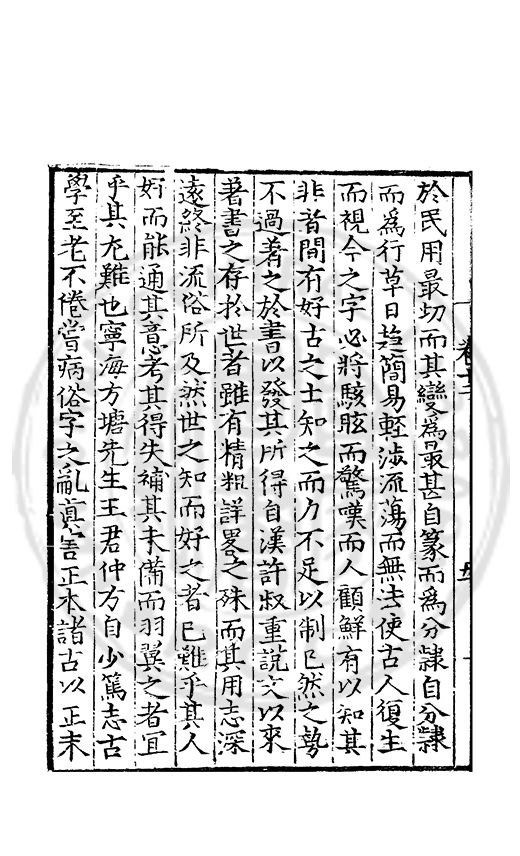 於民用最切而其變為最甚自篆而為分隸自分隸
而為行草日趍簡易輕渉流蕩而無法使古人復生
而視今之字必將駭眩而驚嘆而人顧鮮有以知其
非者間有好古之士知之而力不足以制已然之勢
不過著之於書以發其所得自漢許叔重說文以來
著書之存於世者雖有精粗詳畧之殊而其用志深
遠終非流俗所及然世之知而好之者已難乎其人
好而能通其意考其得失補其未備而羽翼之者冝
乎其尤難也寧海方塘先生王君仲方自少篤志古
學至老不倦嘗病俗字之亂真害正本諸古以正末